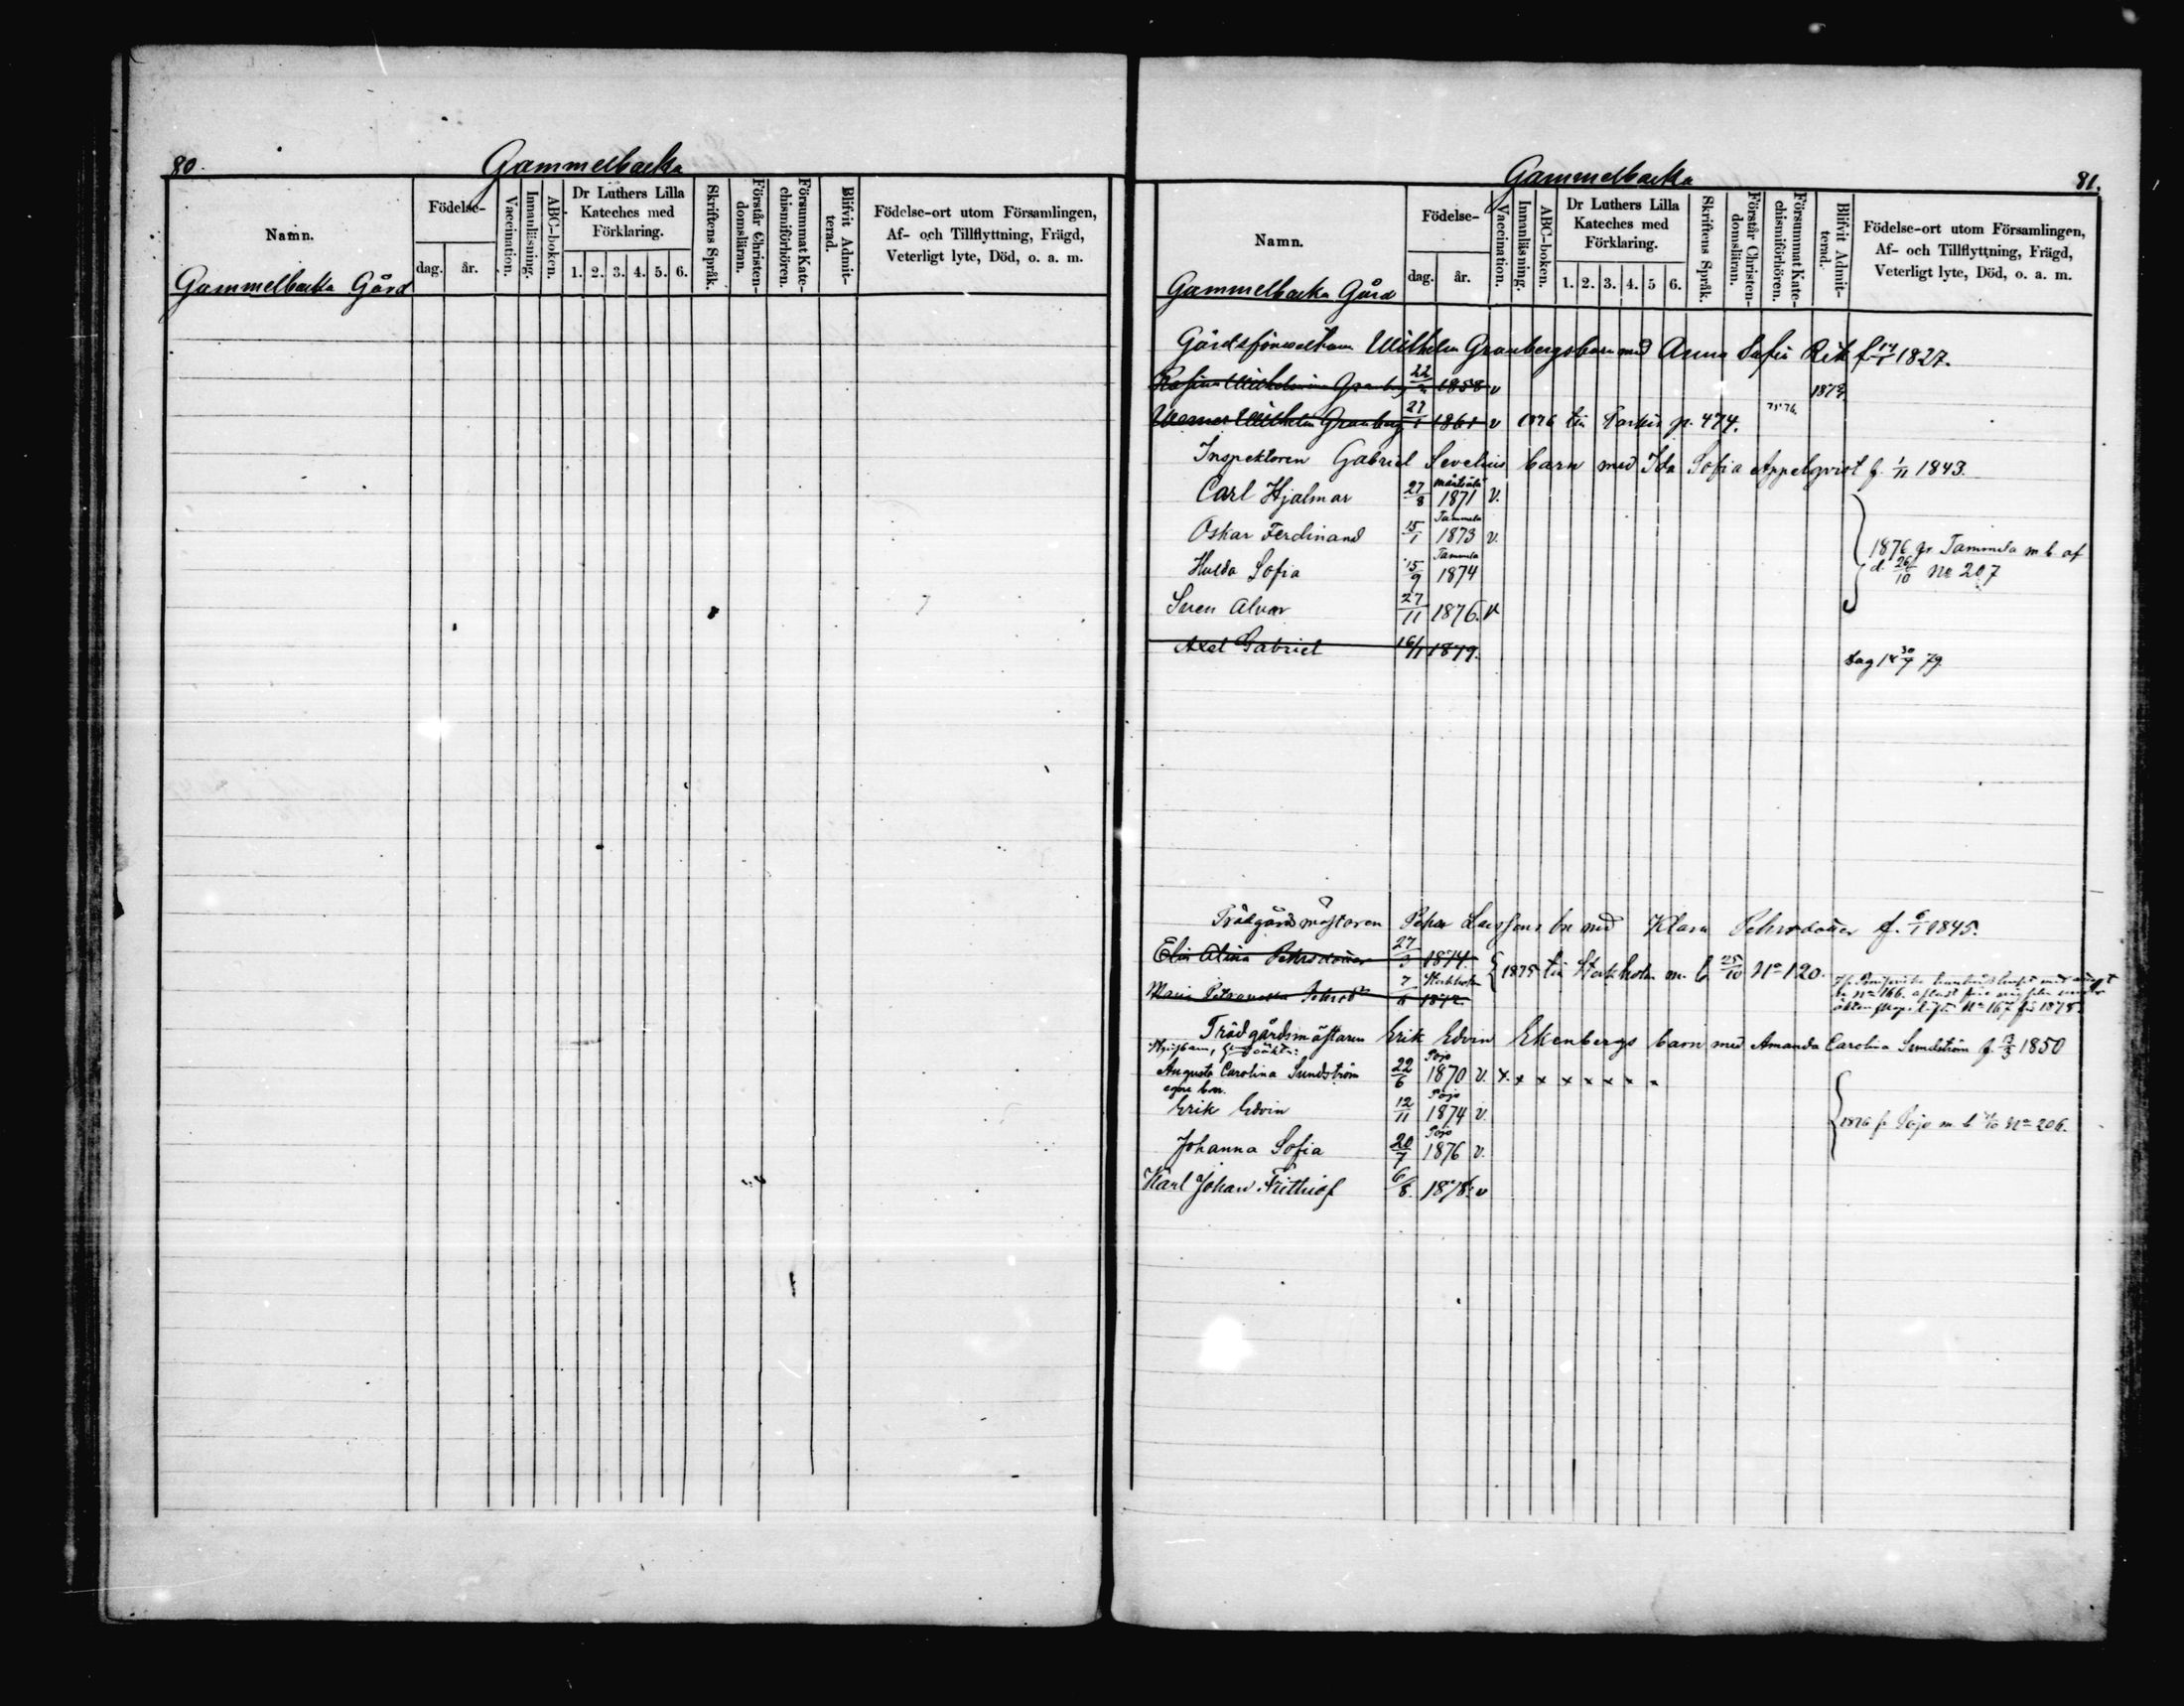 80.
Gammelbacka
Namn.
Födelse-
dag. år.
Vaccination.
Innanläsning.
ABC-boken.
Dr Luthers Lilla
Kateches med
Förklaring.
1. 2. 3. 4. 5. 6.
Skriftens Språk.
Förstår Christen-
domsläran.
Försummat Kate-
chismiförhören.
Blifvit Admit-
terad.
Födelse-ort utom Församlingen,
Af- och Tillflyttning, Frägd,
Veterligt lyte, Död, o. a. m.
Gammelbacka Gård
Gammelbacka
81.
Namn.
Födelse-
dag. år.
Vaccination.
Innanläsning.
ABC-boken.
Dr Luthers Lilla
Kateches med
Förklaring.
1. 2. 3. 4. 5 6.
Skriftens Språk.
Förstår Christen-
domsläran.
Försummat Kate-
chismiförhören.
Blifvit Admit-
terad.
Födelse-ort utom Församlingen,
Af- och Tillflyttning, Frägd,
Veterligt lyte, Död, o. a. m.
Gammelbacka Gård
Wilhelm Granbergs barn med Anna Sofia 1827.
Wilhelmina Granberg 22 1858 v
Werner Wilhelm Granberg 27/1 1861 v 1876 till p. 474. 75.76.
Inspektoren Gabriel Sevelius barn med Ida Sofia Appelqvist f. 1/11 1843.
Carl Hjalmar 27/8 1871 v.
Oskar Ferdinand 15/1 Tammela 1873 v.
Hulda Sofia 15/9 Tammela 1874
1876 fr Tammela m. b. af
d. 26/10 No 207
Sven Alvar 27/11 1876. v
Axel Gabriel 16/11 1879.
Trädgårdsmästaren Larssons bn med Klara Pehrsdotter f. 6/1 1845.
Elin Alina Pehrsdotter 27/3 1874.
1875 till Stockholm m. b. 25/10 No 120.
Maria 7 Stockholm 1872
Trädgårdsmästaren Erik Edvin Ekenbergs barn med Amanda Carolina Sundström f. 1850
Augusta Carolina Sundström 22/6 Pojo 1870 v. x x x x x x x x
egna barn.
Erik Edvin 12/11 Pojo 1874 v.
1876 fr Pojo m. b. No 206.
Johanna Sofia 20/7 Pojo 1876 v.
Karl Johan Frithiof 6/8. 1878. v